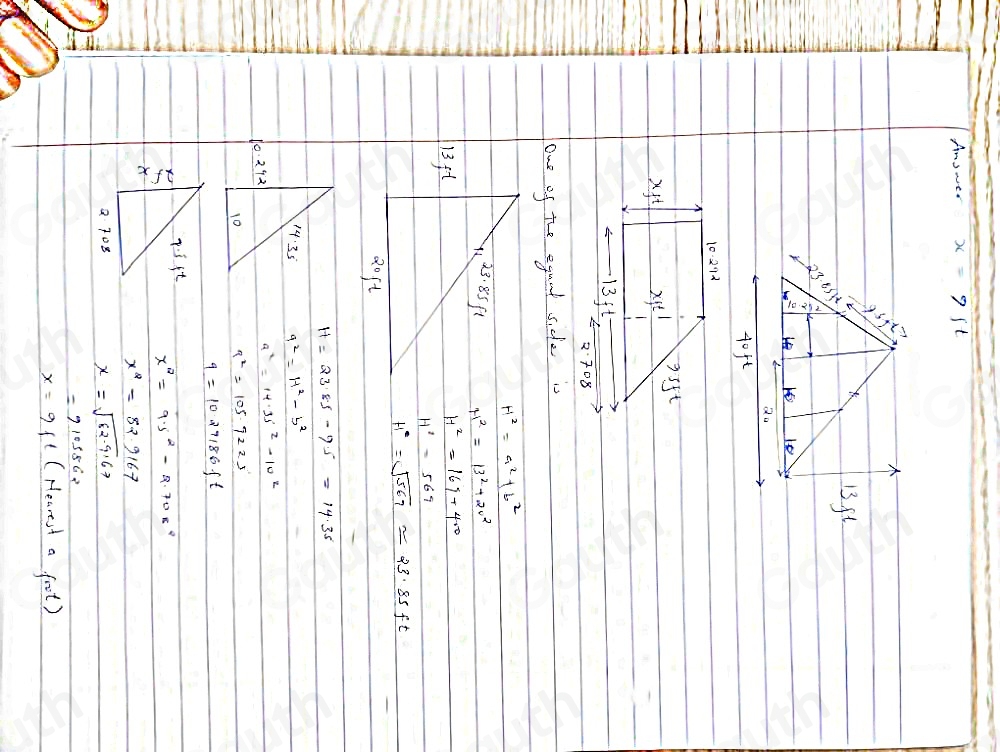 Answer x = 9 ft
23.85ft
9.5ft
10.292
10
10
10
20
40ft
13 ft
10.292
x ft
x ft
9.5ft
13 ft
2.708
One of the equal side is
13 ft
23.85ft
20ft
H² = a² + b²
H² = 13² + 20²
H² = 169 + 400
H² = 569
H² = √569 ≈ 23.85 ft
H = 23.85 - 9.5 = 14.35
10.292
14.35
10
a² = H² - b²
a² = 14.35² - 10²
a² = 105.9225
a = 10.29186 ft
x ft
9.5 ft
2.708
x² = 9.5² - 2.708²
x² = 82.9167
x = √82.9167
= 9.105862
x = 9 ft (Nearest a foot)